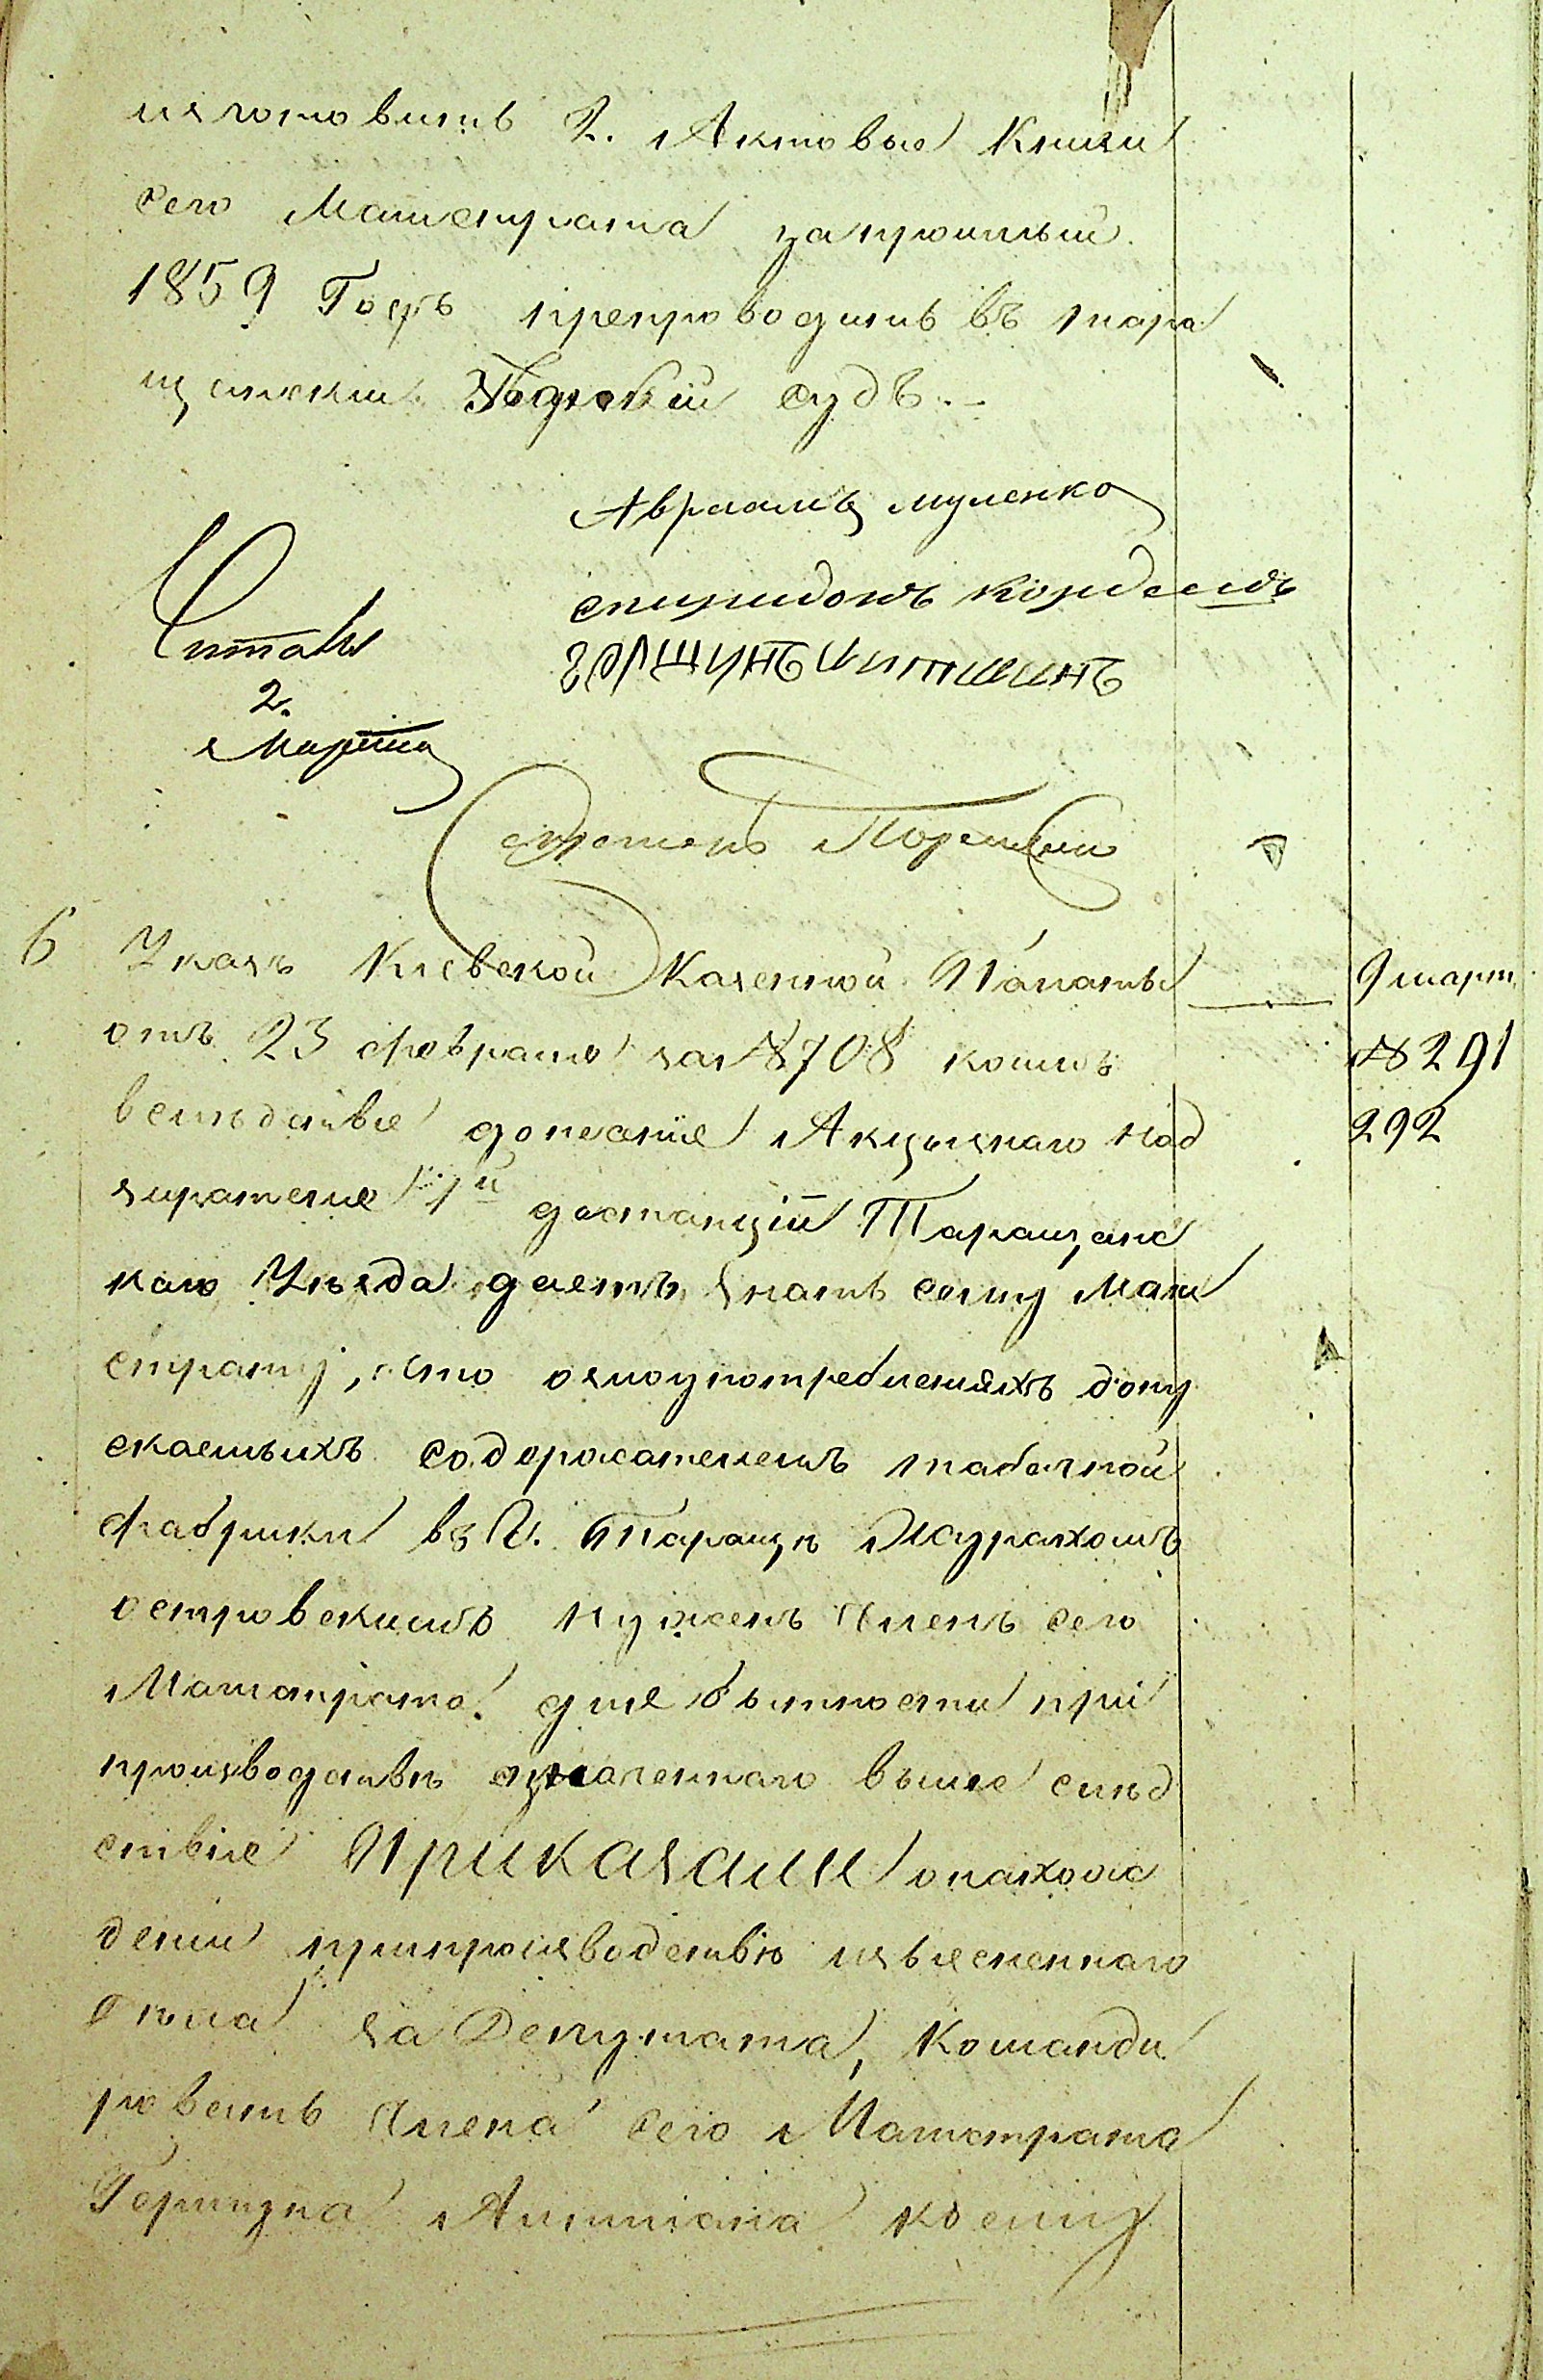 изготовить 2. Актовые Книги
сего Магистрата запрошлый
1859 Годъ препроводить въ тара
щанскии Уѣздный судъ.–
Авраамъ
спиридонъ
гершунъ
Читалъ
2.
Марта
6 Указъ Кіевской Казенной Палаты
9 март.
отъ 23 февраля за №708 коимъ
№ 291
вслѣдствіе донесеніе Акцызнаго над
292
зирателя 1й дестанціи Таращанс
каго Уѣзда даетъ знать сему Маги
страту, что озлоупотребленіяхъ допу
скаемыхъ содержателемъ табачной
фабрики въ Г. Таращѣ
островскимъ нуженъ Членъ сего
Магистрата для бытности при
производствѣ означеннаго выше слѣд
ствіе Приказали онахож
дении припроизводствѣ изъясненнаго
дѣла за Депутата, Команди
ровать Члена сего Магистрата
Гершуна коему